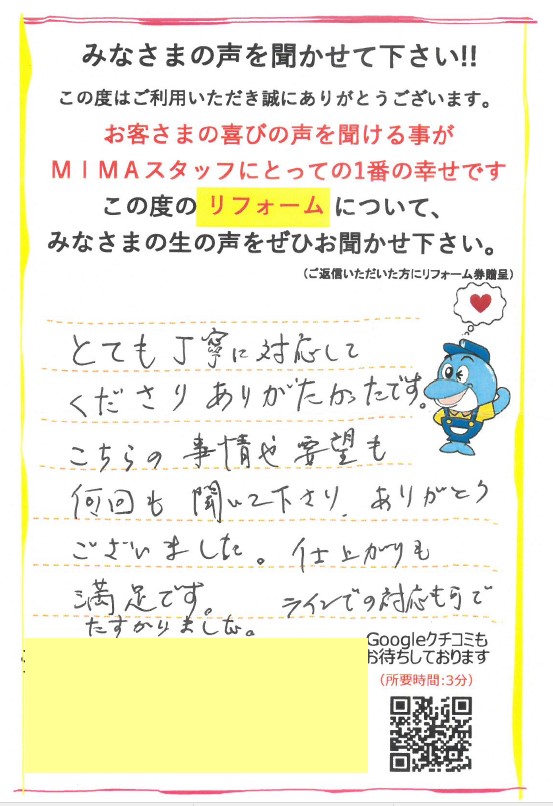 みなさまの声を聞かせて下さい!!
この度はご利用いただき誠にありがとうございます。
お客さまの喜びの声を聞ける事が
MIMAスタッフにとっての1番の幸せです
この度の リフォーム について、
みなさまの生の声をぜひお聞かせ下さい。
(ご返信いただいた方にリフォーム券贈呈)
とても丁寧に対応して
くださりありがたかったです。
こちらの事情や要望も
何回も聞いて下さり、ありがとう
ございました。仕上がりも
満足です。 ラインでの対応も可で
たすかりました。
Googleクチコミも
お待ちしております
(所要時間:3分)